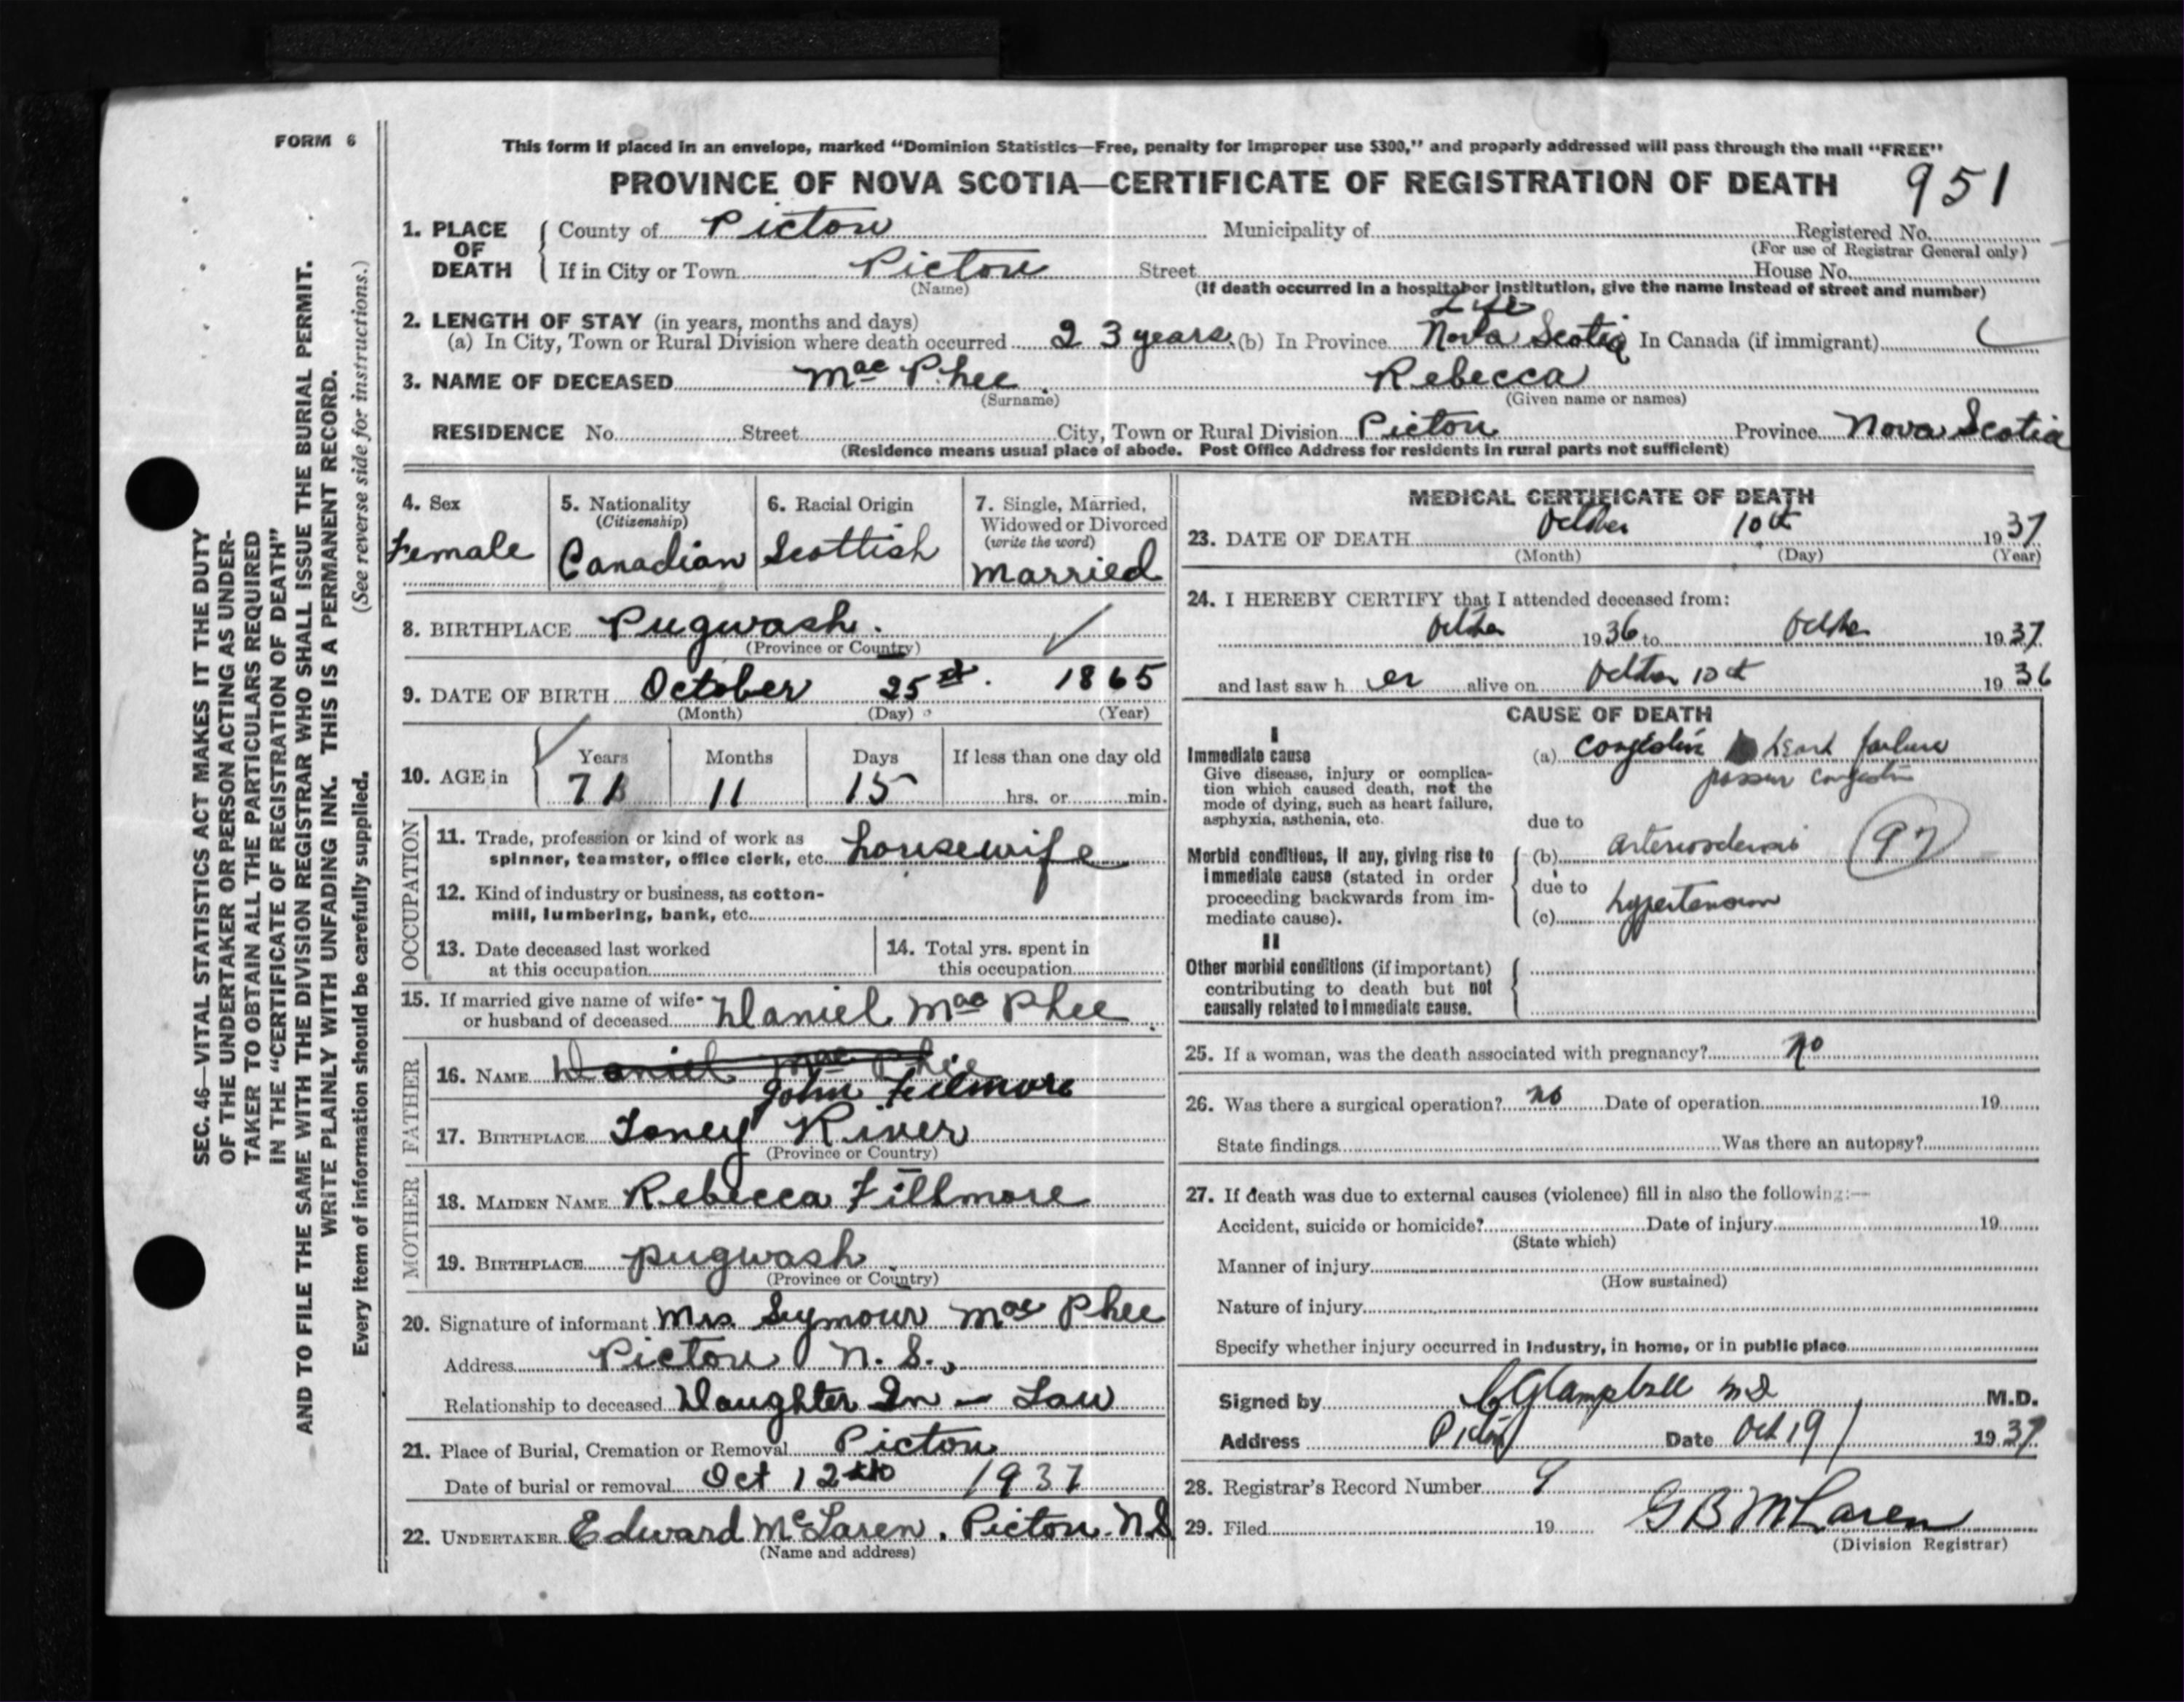 FORM 6
This form if placed in an envelope, marked "Dominion Statistics—Free, penalty for improper use $300," and properly addressed will pass through the mail "FREE"
PROVINCE OF NOVA SCOTIA—CERTIFICATE OF REGISTRATION OF DEATH 951
1. PLACE OF DEATH County of Pictou Municipality of Registered No.
(For use of Registrar General only)
If in City or Town Pictou Street House No.
(Name) (If death occurred in a hospital or institution, give the name instead of street and number)
Life
2. LENGTH OF STAY (in years, months and days)
(a) In City, Town or Rural Division where death occurred 23 years (b) In Province Nova Scotia In Canada (if immigrant)
3. NAME OF DECEASED Mac Phee. Rebecca
(Surname) (Given name or names)
RESIDENCE No. Street City, Town or Rural Division Pictou Province Nova Scotia
(Residence means usual place of abode. Post Office Address for residents in rural parts not sufficient)
4. Sex
Female
5. Nationality
(Citizenship)
Canadian
6. Racial Origin
Scottish
7. Single, Married,
Widowed or Divorced
(write the word)
Married
8. BIRTHPLACE Pugwash.
(Province or Country)
9. DATE OF BIRTH October 25 st. 1865
(Month) (Day) (Year)
10. AGE in Years Months Days If less than one day old
71 11 15 hrs. or min.
OCCUPATION
11. Trade, profession or kind of work as
spinner, teamster, office clerk, etc. housewife
12. Kind of industry or business, as cotton-
mill, lumbering, bank, etc.
13. Date deceased last worked
at this occupation
14. Total yrs. spent in
this occupation
15. If married give name of wife
or husband of deceased Daniel Mac Phee.
FATHER
16. NAME Daniel Mac Phee
John Filmore
17. BIRTHPLACE Toney River
(Province or Country)
MOTHER
18. MAIDEN NAME Rebecca Fillmore
19. BIRTHPLACE pugwash
(Province or Country)
20. Signature of informant Mrs. Seymour Mac Phee
Address Pictou N. S.,
Relationship to deceased Daughter In - Law
21. Place of Burial, Cremation or Removal Pictou
Date of burial or removal Oct 12th 1937
22. UNDERTAKER Edward McLaren. Pictou. N S
(Name and address)
MEDICAL CERTIFICATE OF DEATH
23. DATE OF DEATH October 10th 1937
(Month) (Day) (Year)
24. I HEREBY CERTIFY that I attended deceased from:
October 1936 to October 1937
and last saw h er alive on October 10th 1936
CAUSE OF DEATH
I
Immediate cause
Give disease, injury or complica-
tion which caused death, not the
mode of dying, such as heart failure,
asphyxia, asthenia, etc.
(a) Congestive heart failure
passive congestion
due to
Morbid conditions, if any, giving rise to
immediate cause (stated in order
proceeding backwards from im-
mediate cause).
(b) arteriosclerosis 97
due to
(c) hypertension
II
Other morbid conditions (if important)
contributing to death but not
causally related to immediate cause.
25. If a woman, was the death associated with pregnancy? no
26. Was there a surgical operation? no Date of operation 19
State findings Was there an autopsy?
27. If death was due to external causes (violence) fill in also the following:—
Accident, suicide or homicide? Date of injury 19
(State which)
Manner of injury
(How sustained)
Nature of injury
Specify whether injury occurred in industry, in home, or in public place
Signed by Campbell MD M.D.
Address Pictou Date Oct 19 1937
28. Registrar's Record Number 9
29. Filed 19 G B McLaren
(Division Registrar)
SEC. 46—VITAL STATISTICS ACT MAKES IT THE DUTY
OF THE UNDERTAKER OR PERSON ACTING AS UNDER-
TAKER TO OBTAIN ALL THE PARTICULARS REQUIRED
IN THE "CERTIFICATE OF REGISTRATION OF DEATH"
AND TO FILE THE SAME WITH THE DIVISION REGISTRAR WHO SHALL ISSUE THE BURIAL PERMIT.
WRITE PLAINLY WITH UNFADING INK. THIS IS A PERMANENT RECORD.
Every item of information should be carefully supplied. (See reverse side for instructions.)